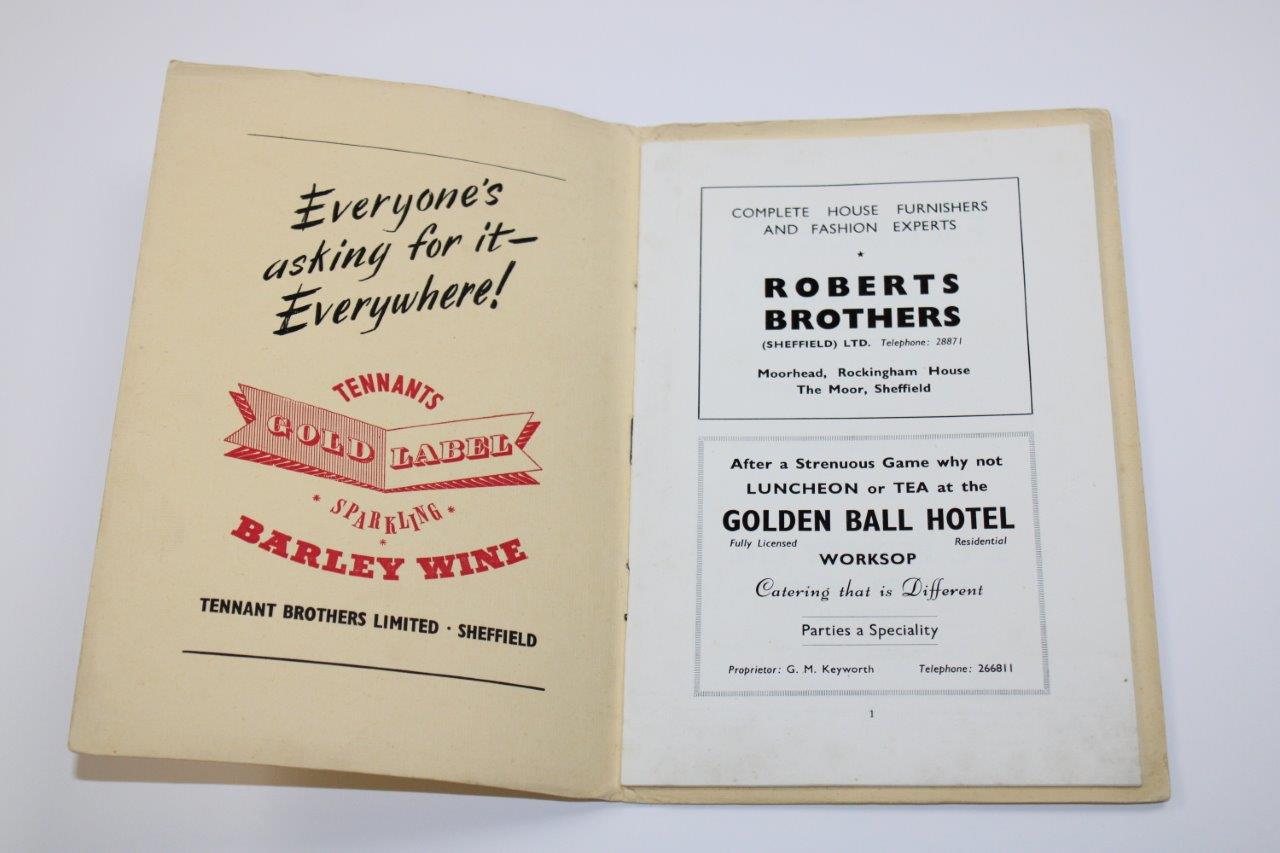 Everyone's
asking for it—
Everywhere!
TENNANTS
GOLD LABEL
* SPARKLING *
*
BARLEY WINE
TENNANT BROTHERS LIMITED · SHEFFIELD
COMPLETE HOUSE FURNISHERS
AND FASHION EXPERTS
★
ROBERTS
BROTHERS
(SHEFFIELD) LTD. Telephone: 28871
Moorhead, Rockingham House
The Moor, Sheffield
After a Strenuous Game why not
LUNCHEON or TEA at the
GOLDEN BALL HOTEL
Fully Licensed Residential
WORKSOP
Catering that is Different
Parties a Speciality
Proprietor: G. M. Keyworth Telephone: 266811
1